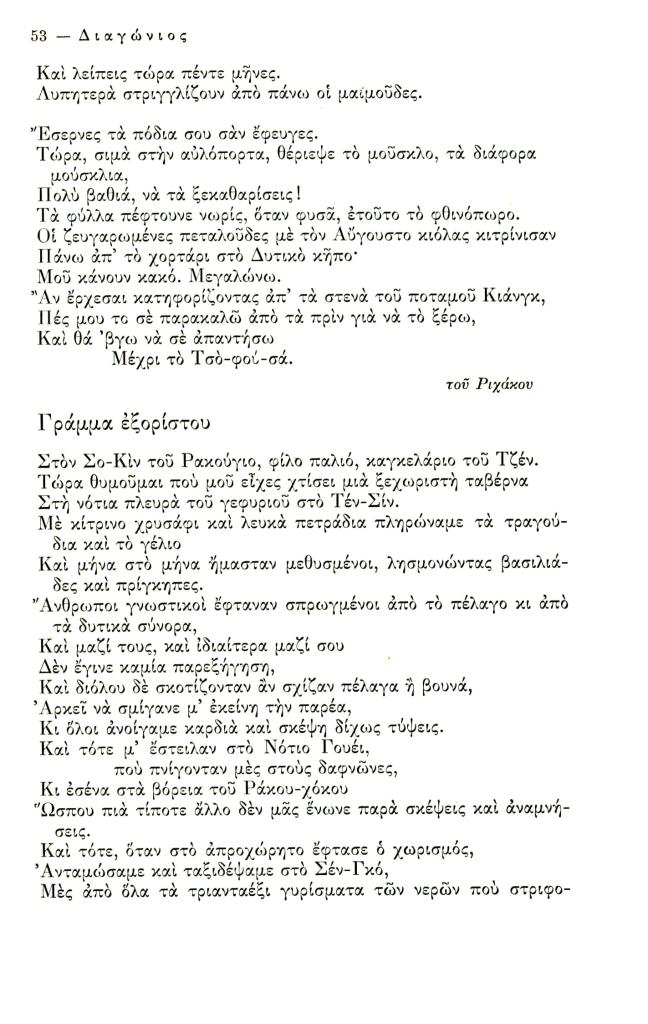 53 — Διαγώνιος
Καὶ λείπεις τώρα πέντε μῆνες.
Λυπητερὰ στριγγλίζουν ἀπὸ πάνω οἱ μαϊμοῦδες.
Ἔσερνες τὰ πόδια σου σὰν ἔφευγες.
Τώρα, σιμὰ στὴν αὐλόπορτα, θέριεψε τὸ μοῦσκλο, τὰ διάφορα
μούσκλια,
Πολὺ βαθιά, νὰ τὰ ξεκαθαρίσεις!
Τὰ φύλλα πέφτουνε νωρίς, ὅταν φυσᾶ, ἐτοῦτο τὸ φθινόπωρο.
Οἱ ζευγαρωμένες πεταλοῦδες μὲ τὸν Αὔγουστο κιόλας κιτρίνισαν
Πάνω ἀπ' τὸ χορτάρι στὸ Δυτικὸ κῆπο·
Μοῦ κάνουν κακό. Μεγαλώνω.
Ἂν ἔρχεσαι κατηφορίζοντας ἀπ' τὰ στενὰ τοῦ ποταμοῦ Κιάνγκ,
Πές μου το σὲ παρακαλῶ ἀπὸ τὰ πρὶν γιὰ νὰ τὸ ξέρω,
Καὶ θά 'βγω νὰ σὲ ἀπαντήσω
Μέχρι τὸ Τσὸ-φού-σά.
τοῦ Ριχάκου
Γράμμα ἐξορίστου
Στὸν Σο-Κὶν τοῦ Ρακούγιο, φίλο παλιό, καγκελάριο τοῦ Τζέν.
Τώρα θυμοῦμαι ποὺ μοῦ εἶχες χτίσει μιὰ ξεχωριστὴ ταβέρνα
Στὴ νότια πλευρὰ τοῦ γεφυριοῦ στὸ Τέν-Σίν.
Μὲ κίτρινο χρυσάφι καὶ λευκὰ πετράδια πληρώναμε τὰ τραγού-
δια καὶ τὸ γέλιο
Καὶ μήνα στὸ μήνα ἤμασταν μεθυσμένοι, λησμονώντας βασιλιά-
δες καὶ πρίγκηπες.
Ἄνθρωποι γνωστικοὶ ἔφταναν σπρωγμένοι ἀπὸ τὸ πέλαγο κι ἀπὸ
τὰ δυτικὰ σύνορα,
Καὶ μαζί τους, καὶ ἰδιαίτερα μαζί σου
Δὲν ἔγινε καμία παρεξήγηση,
Καὶ διόλου δὲ σκοτίζονταν ἂν σχίζαν πέλαγα ἢ βουνά,
Ἀρκεῖ νὰ σμίγανε μ' ἐκείνη τὴν παρέα,
Κι ὅλοι ἀνοίγαμε καρδιὰ καὶ σκέψη δίχως τύψεις.
Καὶ τότε μ' ἔστειλαν στὸ Νότιο Γουέι,
ποὺ πνίγονταν μὲς στοὺς δαφνῶνες,
Κι ἐσένα στὰ βόρεια τοῦ Ράκου-χόκου
Ὥσπου πιὰ τίποτε ἄλλο δὲν μᾶς ἕνωνε παρὰ σκέψεις καὶ ἀναμνή-
σεις.
Καὶ τότε, ὅταν στὸ ἀπροχώρητο ἔφτασε ὁ χωρισμός,
Ἀνταμώσαμε καὶ ταξιδέψαμε στὸ Σέν-Γκό,
Μὲς ἀπὸ ὅλα τὰ τριανταέξι γυρίσματα τῶν νερῶν ποὺ στριφο-